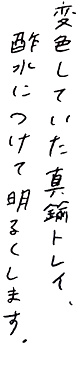 変色していた真鍮トレイ、
酢水につけて明るくします。